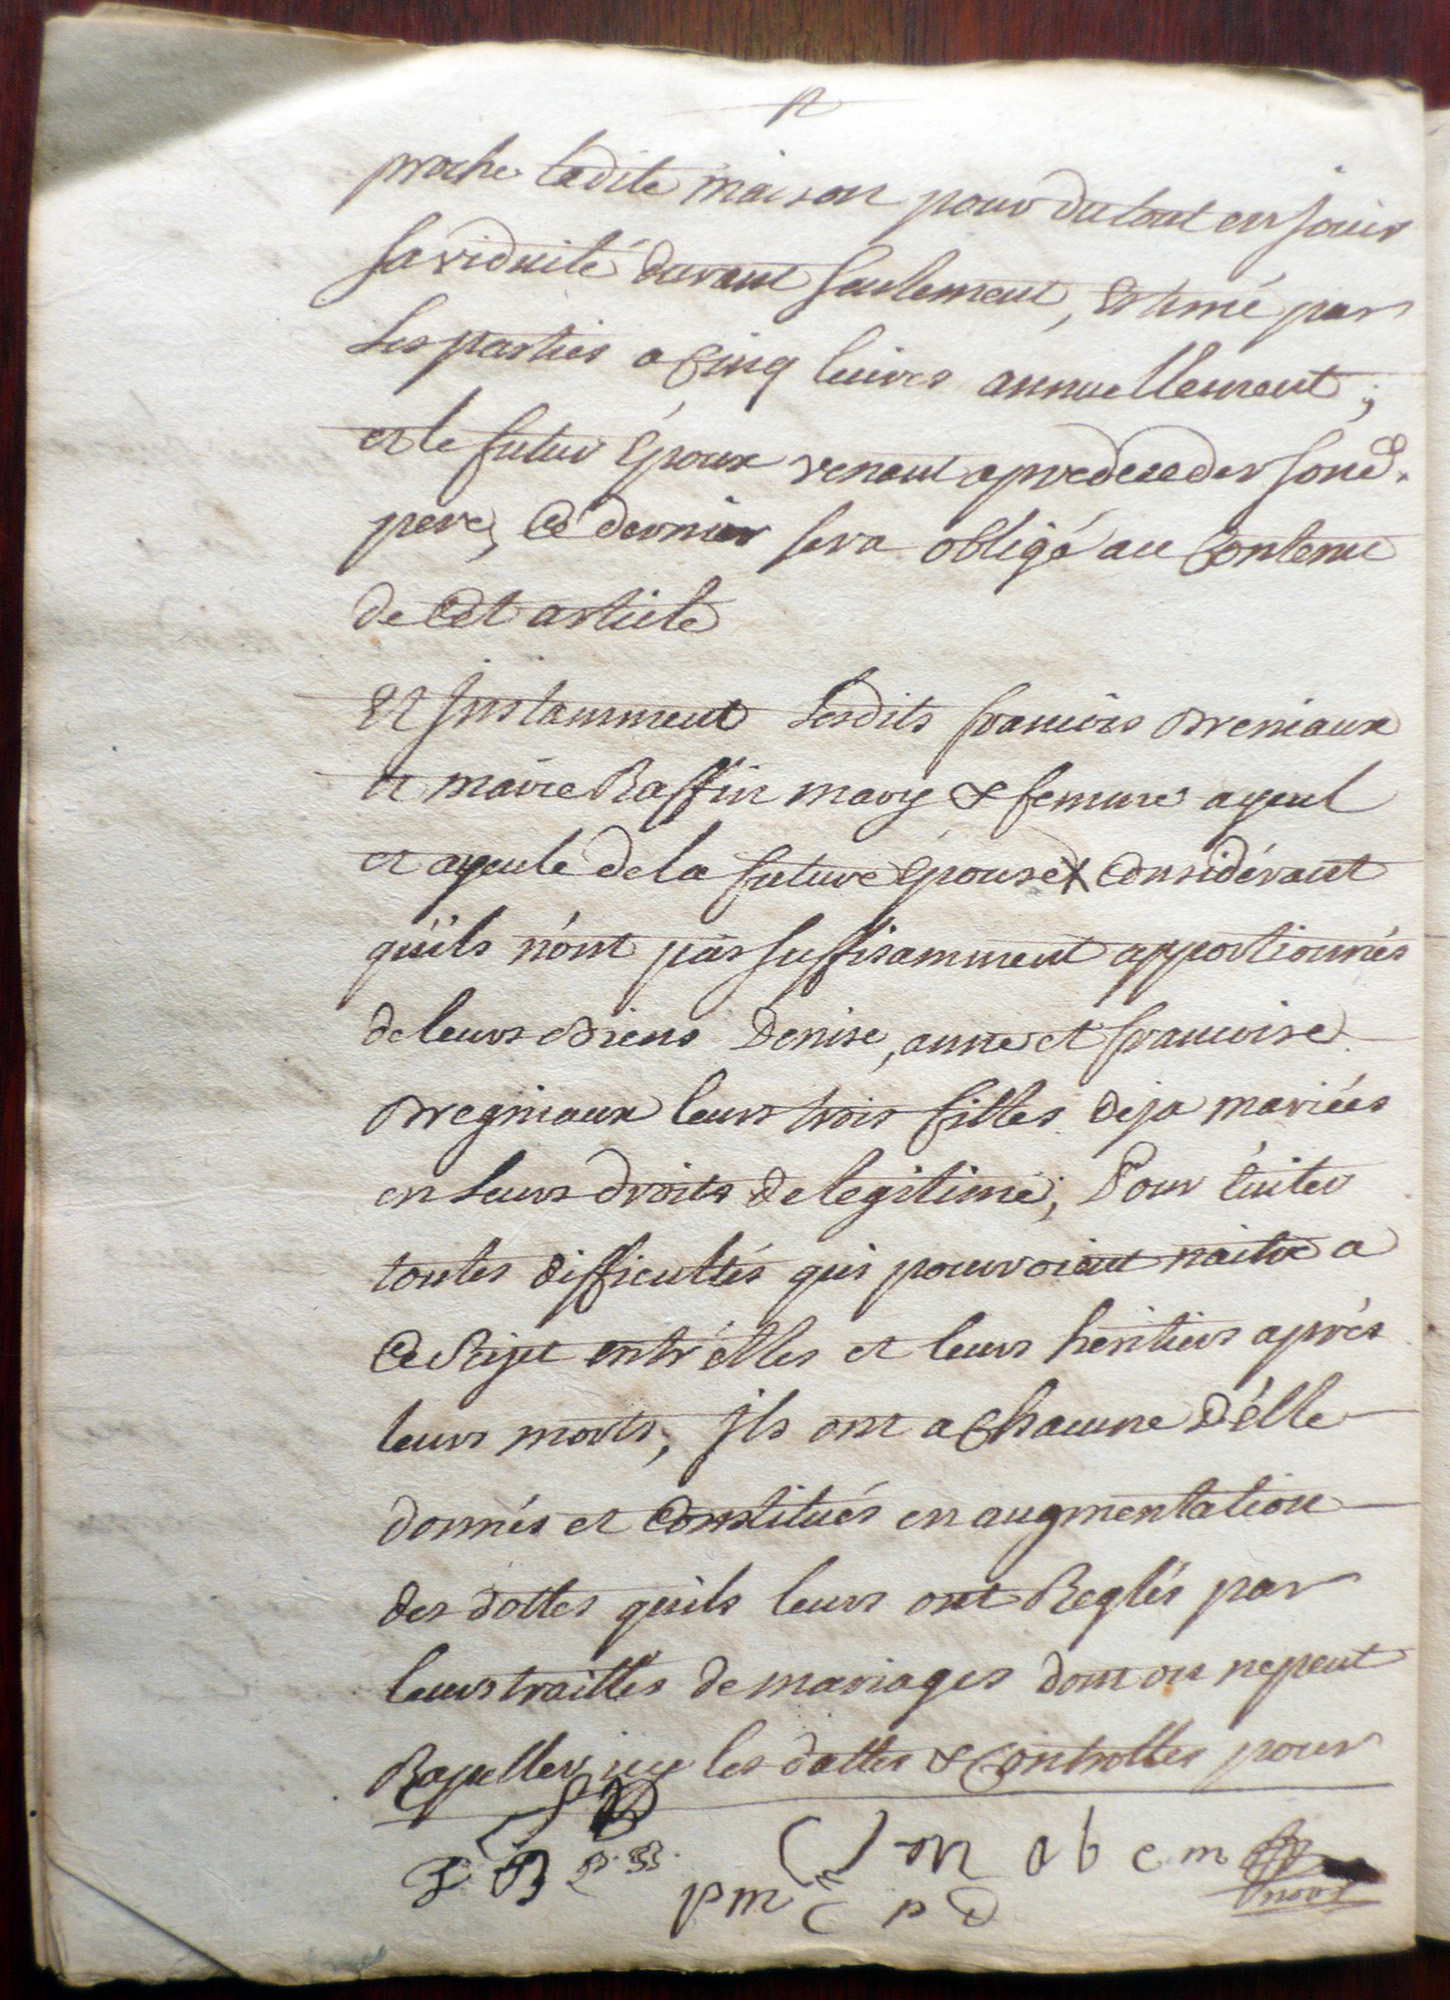 proche ladite maison pour du tout en jouir
sa viduité durant seulement, estimé par
les parties a cinq livres annuellement;
et le futur époux venant a predeceder sond.
pere, ce dernier sera obligé au contenu
de cet article
Et instamment lesdits francois Breniaux
et marie Raffin mary & femme ayeul
et ayeule de la future épouse X considérant
qu'ils n'ont pas suffisamment apportionnés
de leurs Biens Denise, anne et francoise
Bregniaux leurs trois filles deja mariées
en leurs droits de legitime; Pour éviter
toutes difficultés qui pourroient naitre a
ce sujet entr'élles et leurs heritiers aprés
leurs morts, ils ont a chacune d'élle
donnés et constitués en augmentation
des dottes qu'ils leurs ont Reglés par
leurs traittés de mariages dont on ne peut
Rapeller icy les dattes & controlles pour
pm
a b c m